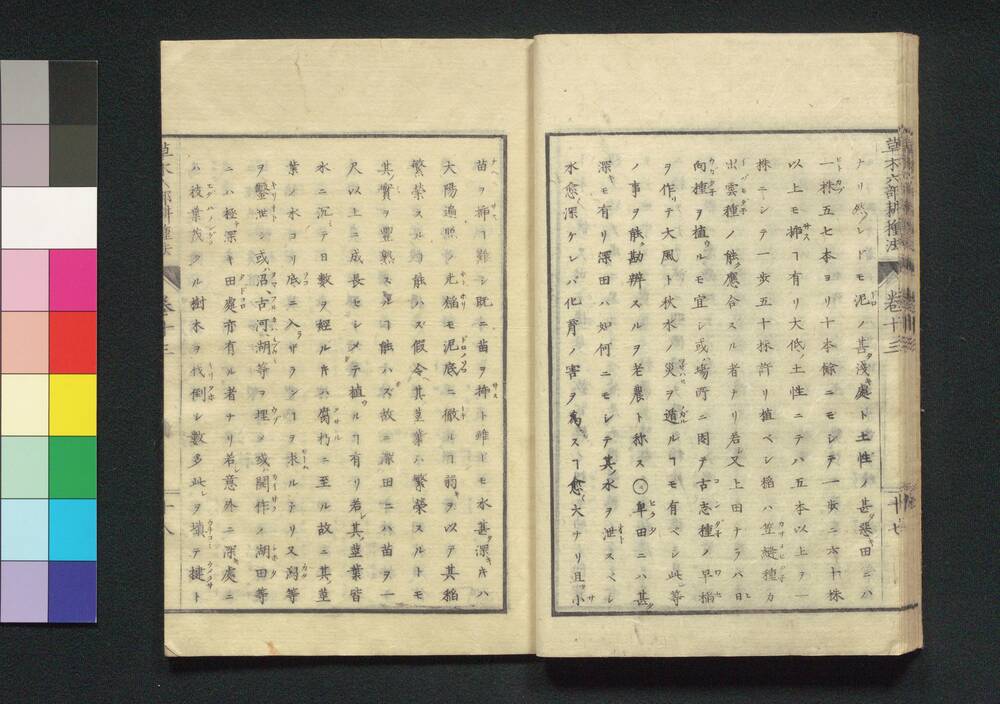 草木六部耕種法 卷十三 十七
ナリ然レドモ泥ノ甚淺處ト土性ノ甚惡キ田ニハ
一株五七本ヨリ十本餘ニモシテ一步ニ六十株
以上モ挿ヿ有リ大低ノ土性ニテハ五本以上ヲ一
株ニシテ一步五十株許リ植ベシ稻ハ笠縫種カ
出雲種ノ能應合スル者ナリ若又上田ナラバ日
向種ヲ植ルモ宜シ或場所ニ因テ古志種ノ早稻
ヲ作リテ大風ト秋水ノ災ヲ遁ルヿモ有ベシ此等
ノ事ヲ能勘辨スルヲ老農ト称ス〇卑田ニハ甚
深キモ有リ深田ハ如何ニモシテ其水ヲ泄スベシ
水愈深ケレバ化育ノ害ヲ為スヿ愈大ナリ且小
苗ヲ挿ヿ難シ既ニ苗ヲ挿ト雖ドモ水甚深キハ
大陽遍照シ光稲モ泥底ニ徹ルヿ弱キヲ以テ其稻
繁榮スルヿ能ハズ假令其莖葉ハ繁榮スルトモ
其實ヲ豐熟スルヿ能ハズ故ニ深田ニハ苗ヲ一
尺以上ニ成長セシメテ植ルヿ有リ若其莖葉皆
水ニ沉テ日數ヲ經ル片ハ腐朽ニ至ル故ニ其莖
葉ノ水コリ底ニ入ラザランヿヲ求ルナリ又潟等
ヲ鑿泄シ或沼古河湖等ヲ埋メ或開作ノ湖田等
ニハ極深キ田處亦有ル者ナリ若意外ニ深處ニ
ハ枝葉茂タル樹木ヲ伐倒シ數多此ヲ壤テ揵ト
草木六部耕種法 卷十三 十八